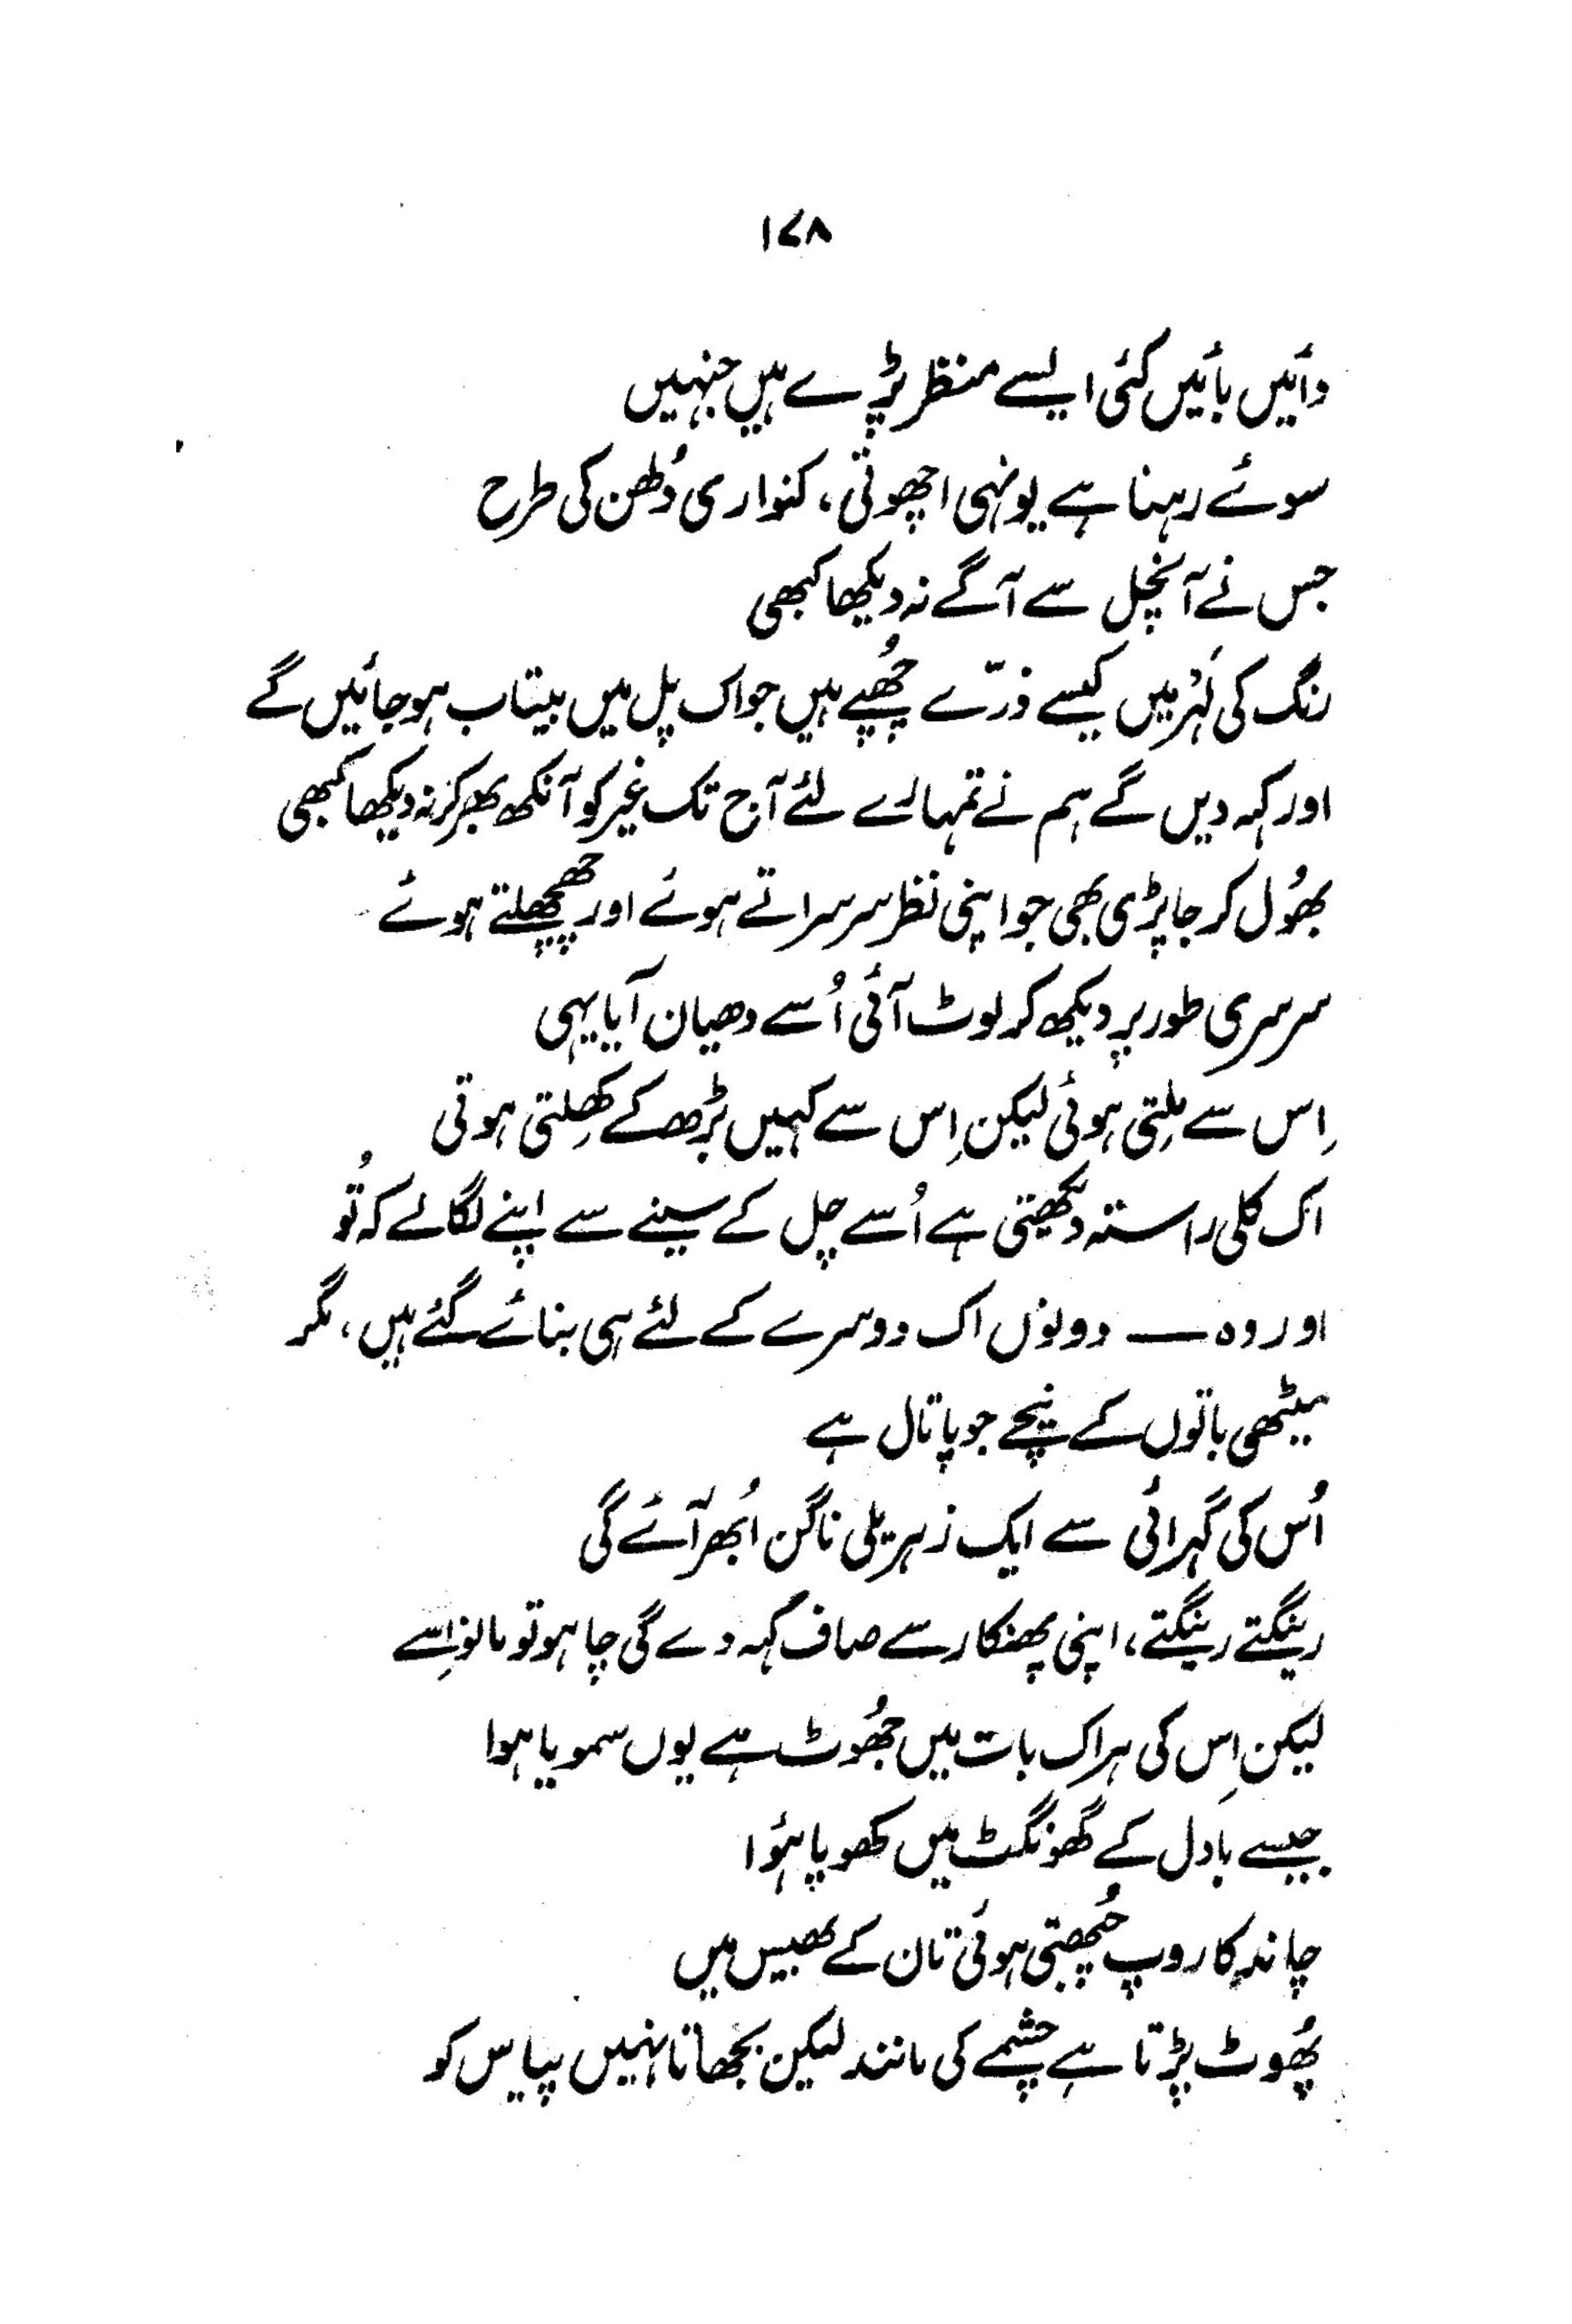 ۱۷۸
دائیں بائیں کئی ایسے منظر پڑے ہیں جنہیں
سوئے رہنا ہے یونہی اچھوتی، کنواری دُلھن کی طرح
جس نے آنچل سے آگے نہ دیکھا کبھی
رنگ کی لَہر میں کیسے ذرّے چُھپے ہیں جو اک پل میں بیتاب ہو جائیں گے
اور کہہ دیں گے ہم نے تمہارے لئے آج تک غیر کو آنکھ بھر کر نہ دیکھا کبھی
بھُول کر جا پڑی بھی جو اپنی نظر سرسراتے ہوئے اور چھچھلتے ہوئے
سرسری طور پر دیکھ کر لوٹ آئی اُسے دھیان آیا یہی
اِس سے مِلتی ہوئی لیکن اِس سے کہیں بڑھ کے کھِلتی ہوتی
اک کلی راستہ دیکھتی ہے اُسے چل کے سینے سے اپنے لگالے کہ تُو
اور وہ — دونوں اک دوسرے کے لئے ہی بنائے گئے ہیں، مگر
میٹھی باتوں کے نیچے جو پاتال ہے
اُس کی گہرائی سے ایک زہریلی ناگن اُبھر آئے گی
رینگتے رینگتے، اپنی پھنکار سے صاف کہہ دے گی چاہو تو مانو اِسے
لیکن اِس کی ہر اک بات میں جھُوٹ ہے یوں سمویا ہوا
جیسے بادل کے گھونگٹ میں کھویا ہُوا
چاند کا روپ چُھپتی ہوئی تان کے بھیس میں
پھُوٹ پڑتا ہے چشمے کی مانند لیکن بجھاتا نہیں پیاس کو